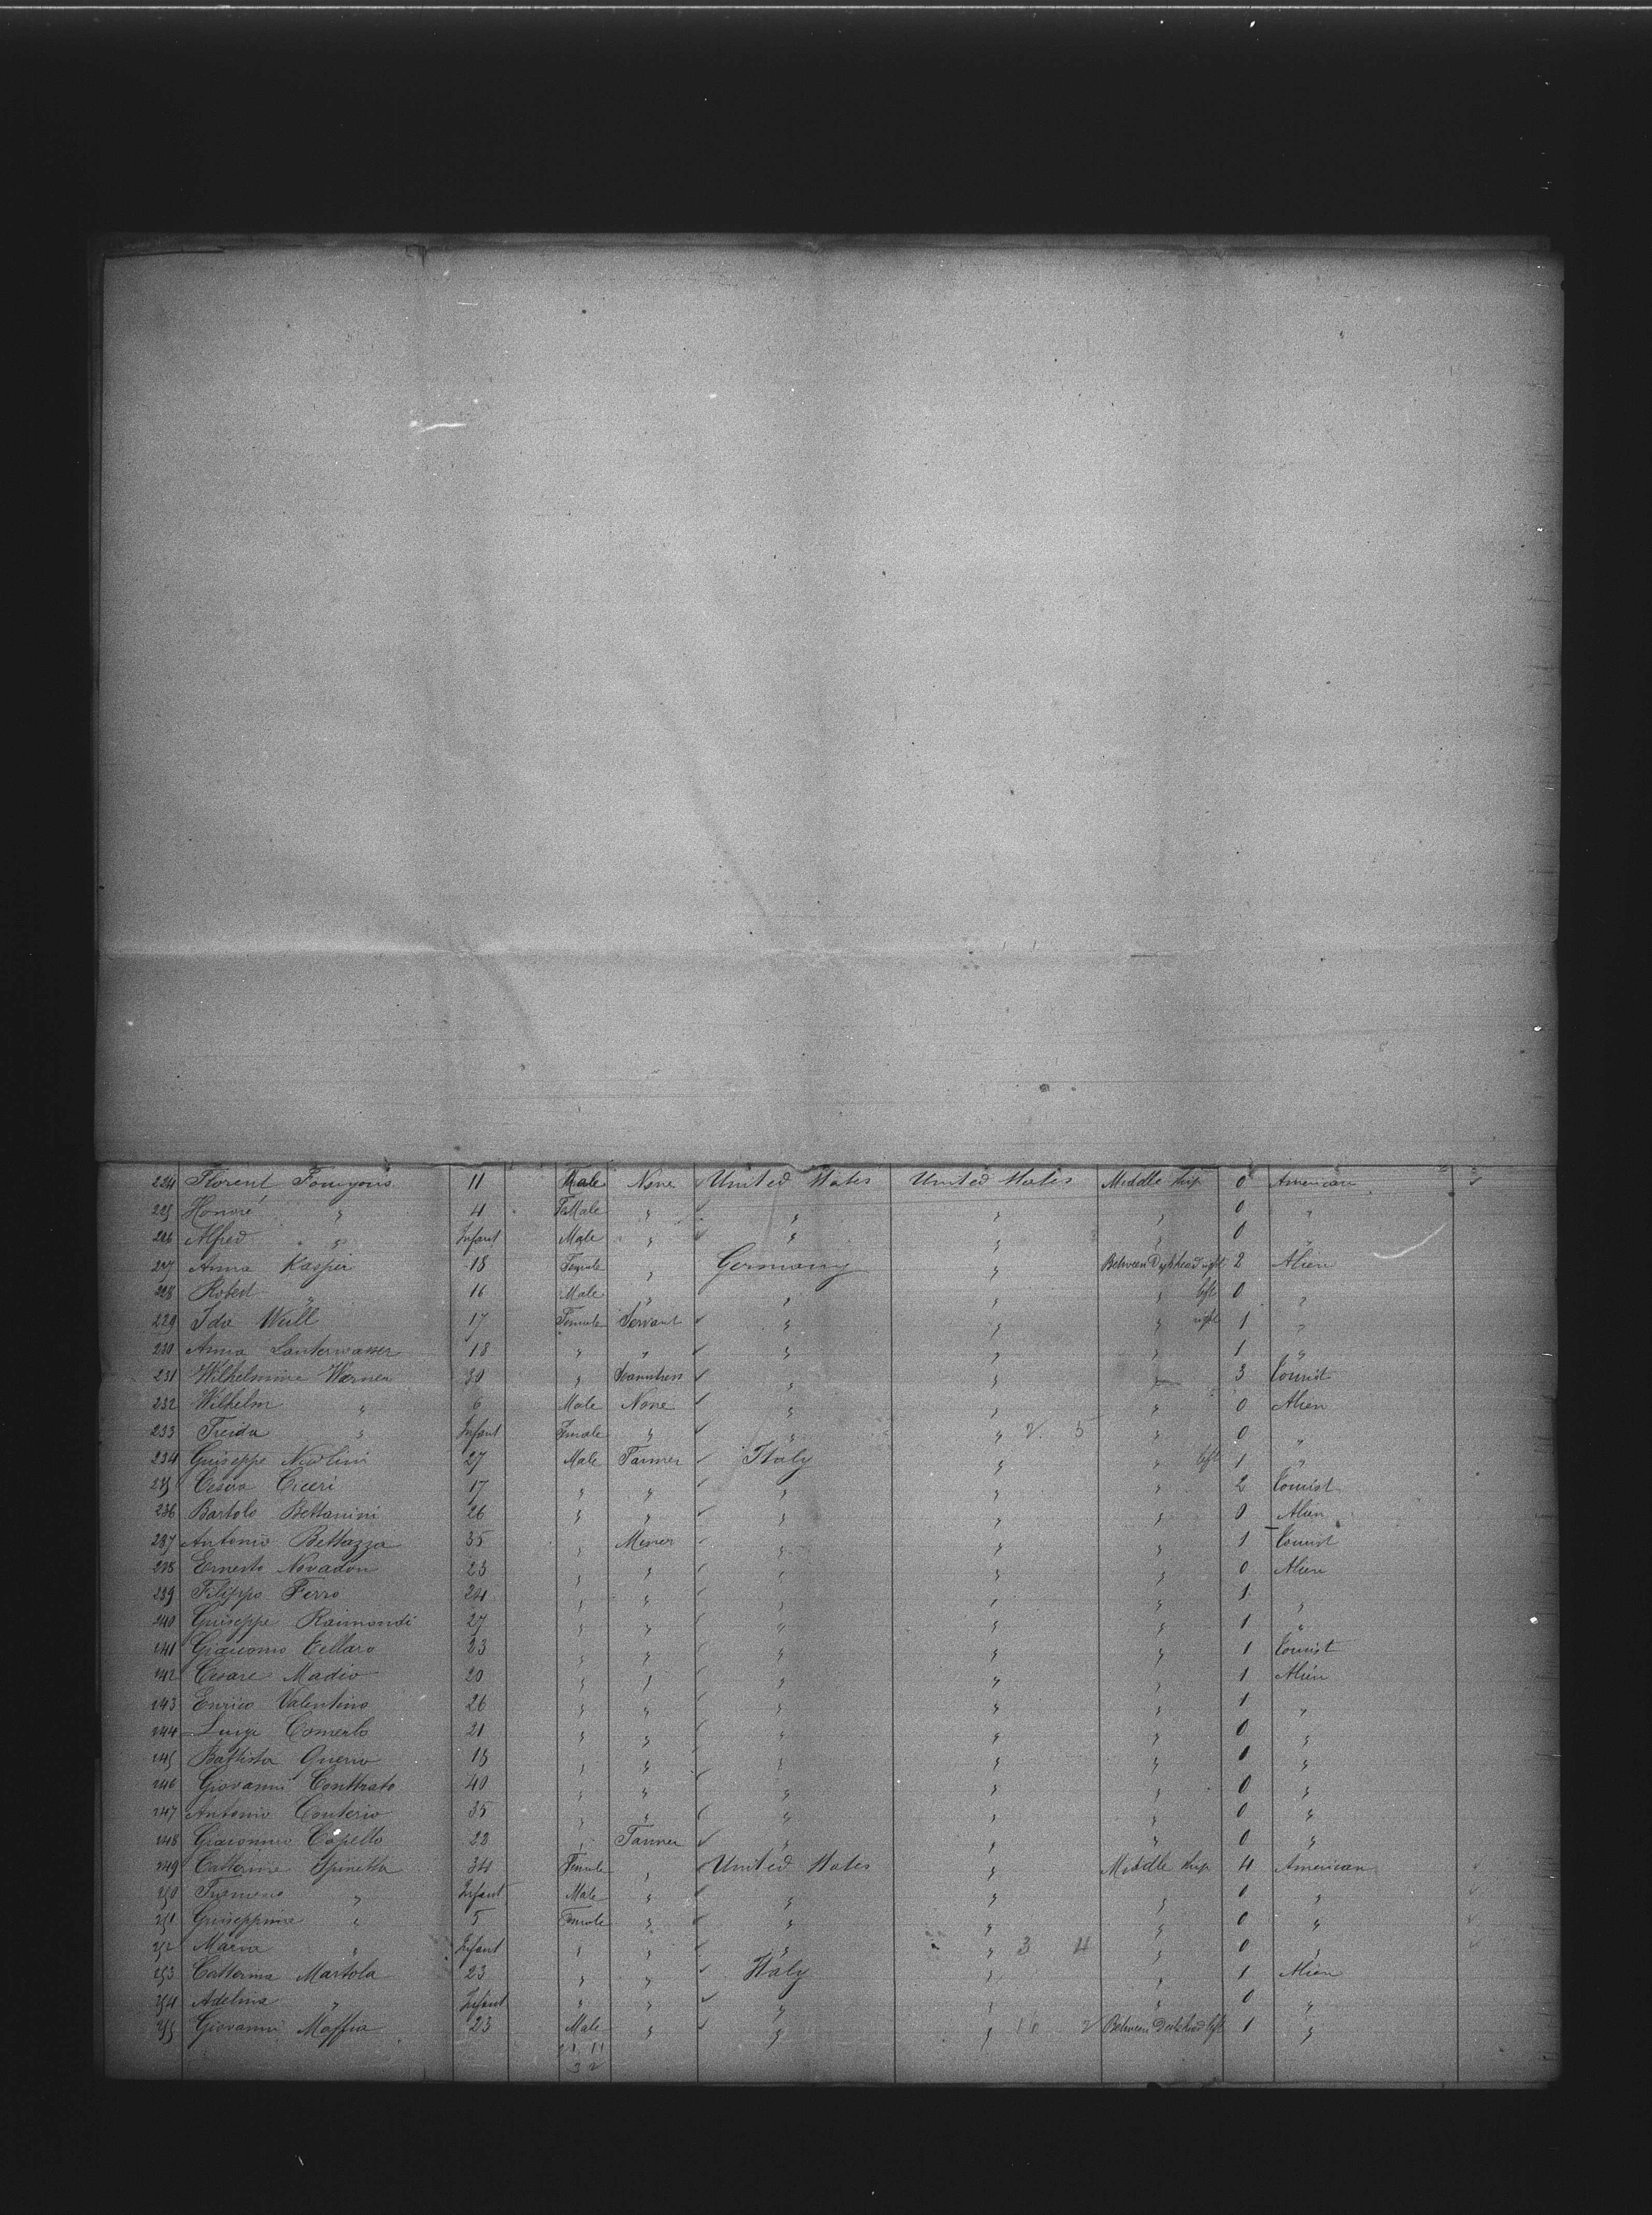 224 Florent Fourgous 11 Male None United States United States Middle ship 0 American
225 Honoré " 4 FeMale " " " " 0 "
226 Alfred " Infant Male " " " " 0 "
227 Anna Kasper 18 Female " Germany " Between Decks head right 2 Alien
228 Robert " 16 Male " " " " left 0 "
229 Ida Wüll 17 Female Servant " " " right 1 "
230 Anna Lauterwasser 18 " " " " " 1 "
231 Wilhelmine Werner 30 " Seamstress " " " 3 Tourist
232 Wilhelm " 6 Male None " " " 0 Alien
233 Freida " Infant Female " " " 2. 5 " 0 "
234 Guiseppe Nicolini 27 Male Farmer Italy " " left 1 "
235 Cesira Ciceri 17 " " " " " 2 Tourist
236 Bartolo Bettanini 26 " " " " " 0 Alien
237 Antonio Bettazza 35 " Miner " " " 1 Tourist
238 Ernesto Novadon 23 " " " " " 0 Alien
239 Filippo Ferro 24 " " " " " 1 "
240 Guiseppe Raimondi 27 " " " " " 1 "
241 Giacomo Cellaro 23 " " " " " 1 Tourist
242 Cesare Madio 20 " " " " " 1 Alien
243 Enrico Valentino 26 " " " " " 1 "
244 Luigi Comerlo 21 " " " " " 0 "
245 Battista Querio 18 " " " " " 0 "
246 Giovanni Conttrato 40 " " " " " 0 "
247 Antonio Conterio 35 " " " " " 0 "
248 Giacomino Capello 28 " Farmer " " " 0 "
249 Catterine Spinetta 34 Female " United States " Middle ship 4 American
250 " Infant Male " " " " 0 "
251 Guiseppina " 5 Female " " " " 0 "
252 Maria " Infant " " " " 3 4 " 0 "
253 Catterina Martola 23 " " Italy " " 1 Alien
254 Adelina " Infant " " " " " 0 "
255 Giovanni Maffia 23 Male " " " 2 Between Decks head left 1 "
32